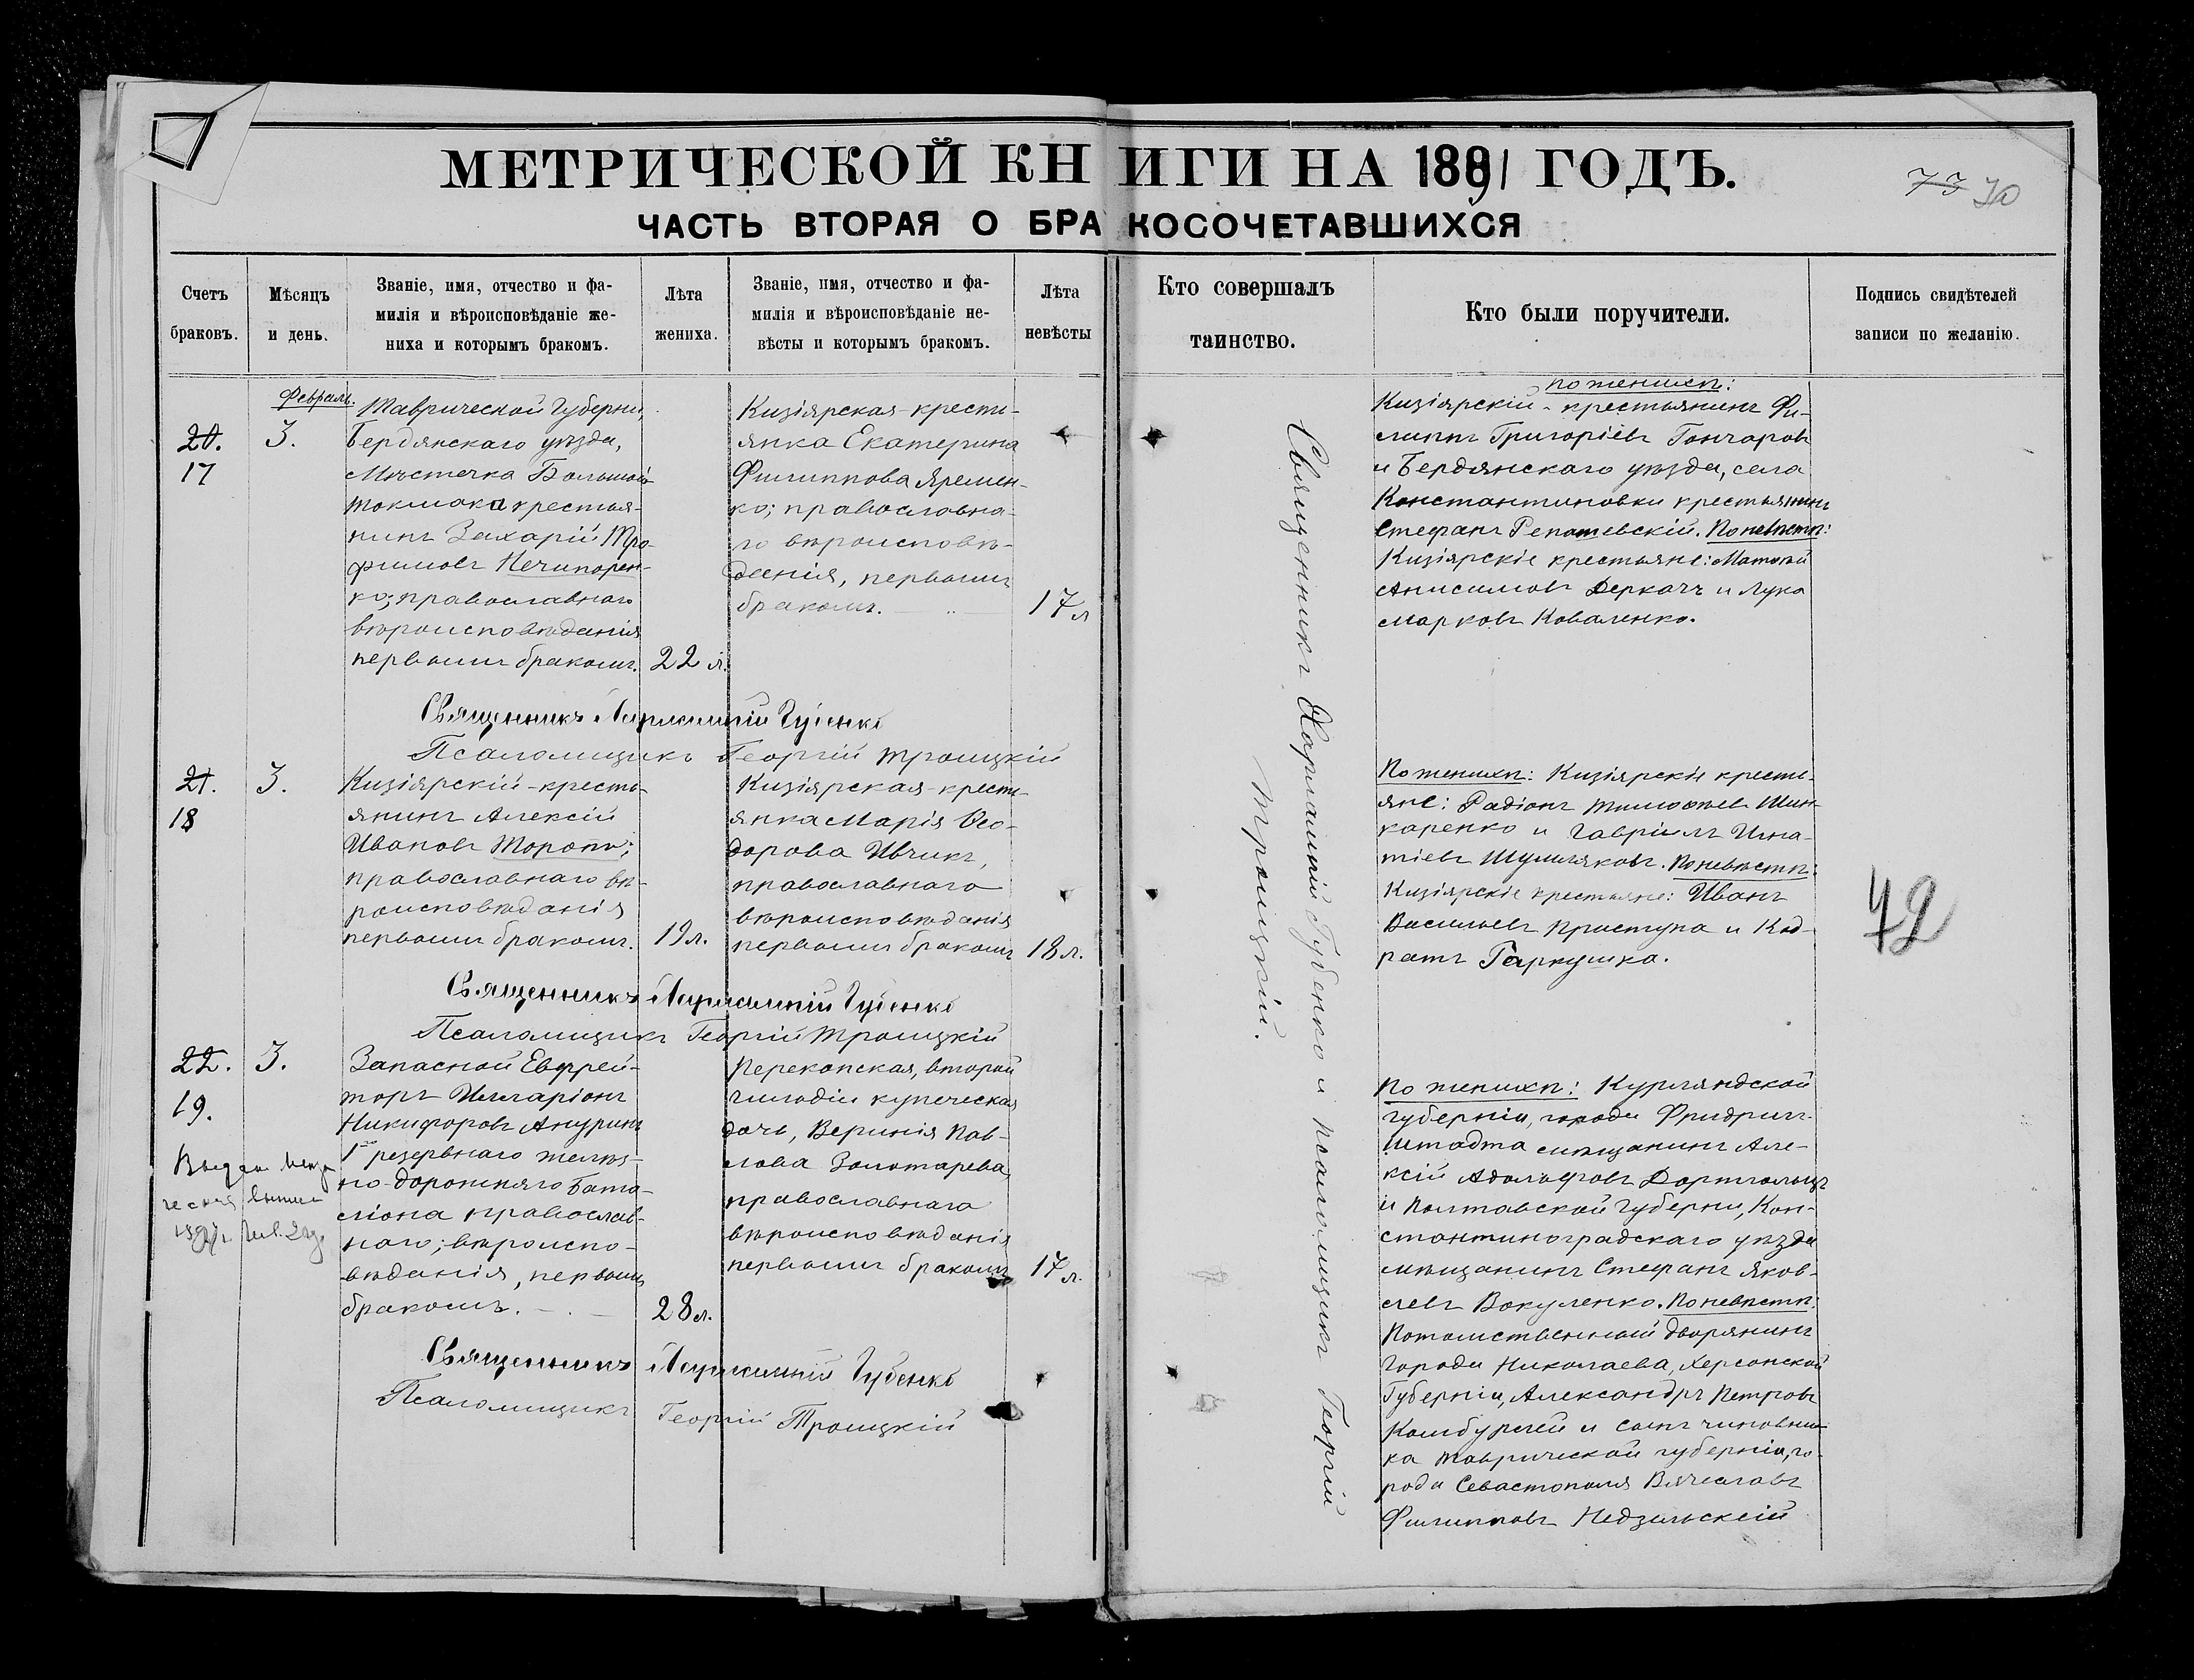 МЕТРИЧЕСКОЙ КНИГИ НА 1891 ГОДЪ.
73 70
ЧАСТЬ ВТОРАЯ О БРАКОСОЧЕТАВШИХСЯ
Счетъ браковъ.
Мѣсяцъ и день.
Званіе, имя, отчество и фа-
милія и вѣроисповѣданіе же-
ниха и которымъ бракомъ.
Лѣта жениха.
Званіе, имя, отчество и фа-
милія и вѣроисповѣданіе не-
вѣсты и которымъ бракомъ.
Лѣта невѣсты
Кто совершалъ таинство.
Кто были поручители.
Подпись свидѣтелей записи по желанію.
20.
17
Февраль.
3.
Таврической Губерніи,
Бердянскаго уѣзда,
Мѣстечка Большой
Токмака крестья-
нинъ Захарій Тро-
фимовъ Нечипорен-
ко; православнаго
вѣроисповѣданія
первымъ бракомъ.
22 л.
Кизіярская-крестья-
янка Екатерина
Филиппова Яремен-
ко; православна-
го вѣроисповѣ-
денія, первымъ
бракомъ.
17 л
Священникъ Харлампій Губенко и псаломщикъ Георгій
Троицкій.
По женихѣ:
Кизіярскій-крестьянинъ Фи-
липпъ Григоріевъ Гончаровъ
и Бердянскаго уѣзда, села
Константиновки крестьянинъ
Стефанъ Репошевскій. По невѣстѣ:
Кизіярскіе крестьяне: Матвѣй
Анисимовъ Деркачъ и Лука
Марковъ Коваленко.
Священникъ Харлампій Губенко
Псаломщикъ Георгій Троицкій
21.
18
3.
Кизіярскій-кресть-
янинъ Алексій
Ивановъ Торопъ;
православнаго вѣ-
роисповѣданія
первымъ бракомъ.
19 л.
Кизіярская-кресть-
янка Марія Ѳео-
дорова Ивчикъ,
православнаго
вѣроисповѣданія
первымъ бракомъ
18 л.
По женихѣ: Кизіярскіе кресть-
яне: Радіонъ Тимоѳеевъ Шин-
каренко и Гавріилъ Игна-
тіевъ Шумляковъ. По невѣстѣ:
Кизіярскіе крестьяне: Иванъ
Васильевъ Приступа и Код-
ратъ Гаркушка.
42
Священникъ Харлампій Губенко
Псаломщикъ Георгій Троицкій
22.
19.
3.
Запасной Ефрей-
торъ Илларіонъ
Никифоровъ Ануринъ
1го резервнаго желѣз-
но-дорожняго Бата-
ліона православ-
наго; вѣроиспо-
вѣданія, первымъ
бракомъ.
28 л.
Перекопская, второй
гильдіи купеческая
дочь, Виринія Пав-
лова Золотарева,
православнаго
вѣроисповѣданія
первымъ бракомъ
17 л.
По женихѣ: Курляндской
губерніи, города Фридрих-
штадта мѣщанинъ Але-
ксій Адольфовъ Дортгольцъ
и Полтавской Губерніи, Кон-
стантиноградскаго уѣзда
мѣщанинъ Стефанъ Яков-
левъ Вакуленко. По невѣстѣ:
Потомственный дворянинъ
города Николаева, Херсонской
Губерніи, Александръ Петровъ
Комбурлей и сынъ чиновни-
ка Таврической губерніи, го-
рода Севастополя Вячеславъ
Филипповъ Недзельскій
Священникъ Харлампій Губенко
Псаломщикъ Георгій Троицкій